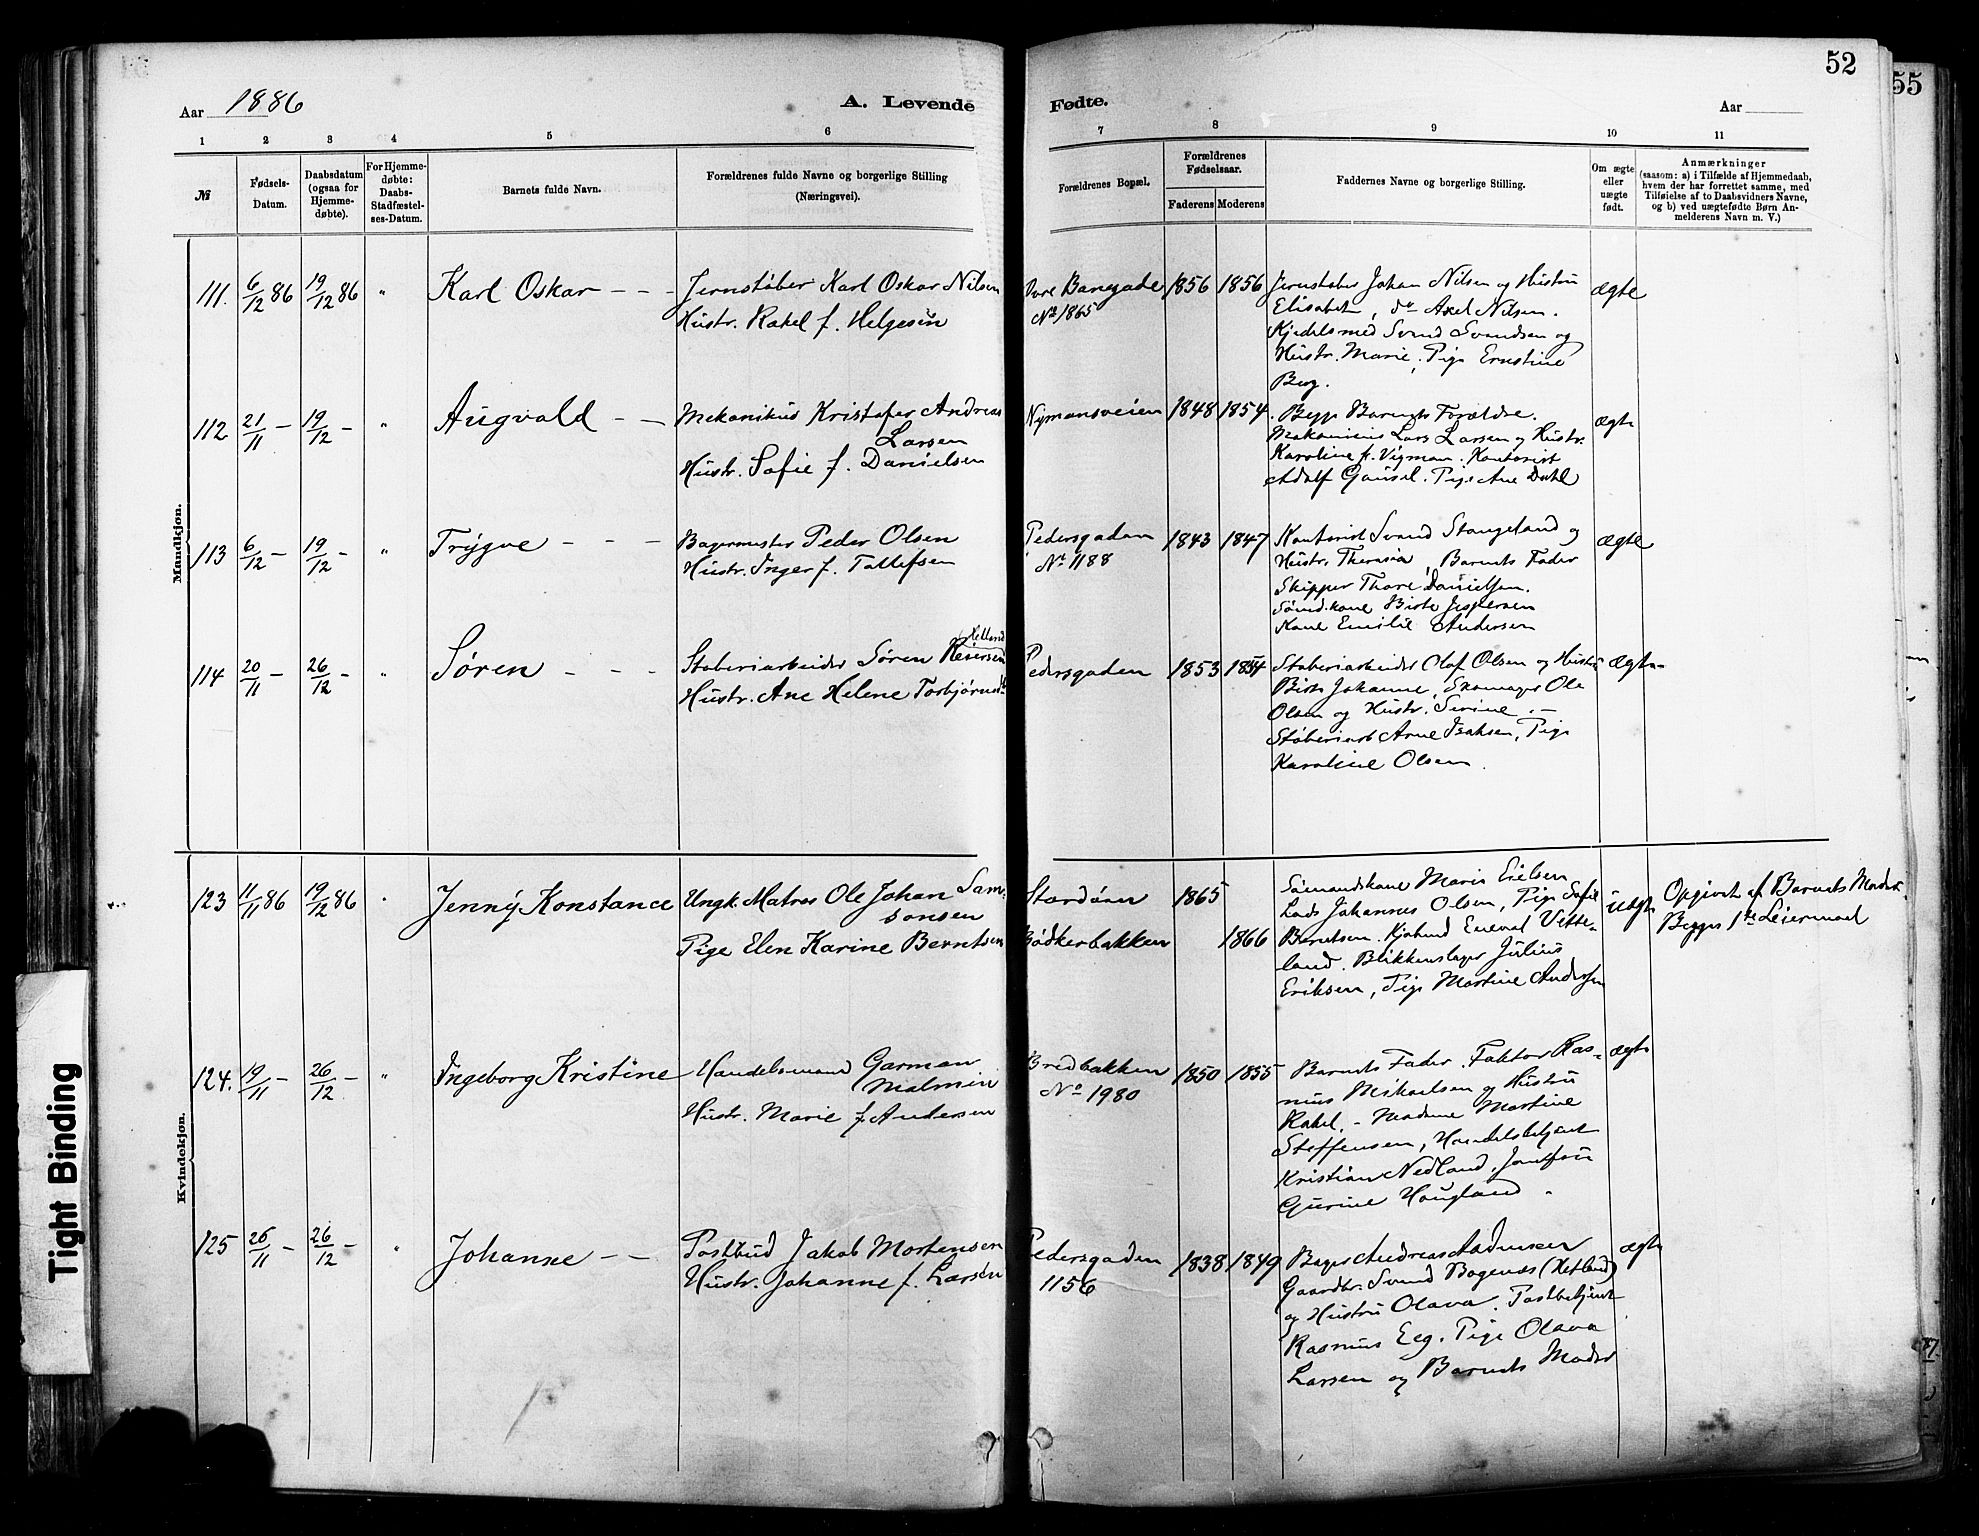 52
55
Aar 1886
A. Levende
Fødte.
Aar
1 2 3 4 5 6 7 8 9 10 11
№
Fødsels-
Datum.
Daabsdatum
(ogsaa for
Hjemme-
døbte).
For Hjemme-
døbte:
Daabs-
Stadfæstel-
ses-Datum.
Barnets fulde Navn.
Forældrenes fulde Navne og borgerlige Stilling
(Næringsvei).
Forældrenes Bopæl.
Forældrenes
Fødselsaar.
Faderens Moderens
Faddernes Navne og borgerlige Stilling.
Om ægte
eller
uægte
født.
Anmærkninger
(saasom: a) i Tilfælde af Hjemmedaab,
hvem der har forrettet samme, med
Tilføielse af to Daabsvidners Navne,
og b) ved uægtefødte Børn An-
melderens Navn m. V.)
Mandkjøn.
111. 6/12 86 19/12 86 " Karl Oskar - - -
Jernstøber Karl Oskar Nilsen
Hustr. Rakel f. Helgesen
Øvre Banegade
No 1865
1856 1856
Jernstøber Johan Nilsen og Hustru
Elisabet, do Axel Nilsen.
Kjedelsmed Svend Svendsen og
Hustr. Marie, Pige Ernstine
Berg.
ægte
112 21/11 - 19/12 - " Augvald - -
Mekanikus Kristofer Andreas
Larsen
Hustr. Sofie f. Danielsen
Nymansveien 1848 1854
Begge Barnets Forældre.
Mekanikus Lars Larsen og Hustr.
Karoline f. Vigman. Kontorist
Adolf Gausel. Pige Ane Dahl
ægte
113 6/12 - 19/12 - " Trygve - - -
Bagermester Peder Olsen
Hustr. Inger f. Tollefsen
Pedersgaden
No 1188
1843 1847
Kontorist Svend Stangeland og
Hustr. Theresia, Barnets Fader
Skipper Thore Danielsen.
Sømd.kone Birte Jespersen
Kone Emilie Andersen
ægte
114 20/11 - 26/12 - " Søren - - -
Helland
Støberiarbeider Søren
Hustr. Ane Helene Torbjørnsdtr
Pedersgaden 1853 1854
Støberiarbeider Olof Olsen og Hustr
Birte Johanne, Skomager Ole
Olsen og Hustr. Serine. -
Støberiarb Arne Isaksen, Pige
Karoline Olsen.
ægte
Kvindekjøn.
123 11/11 86 19/12 86 " Jenny Konstance
Ungk. Matros Ole Johan Sam-
sonsen
Pige Elen Karine Berntsen
1865
Bødkerbakken 1866
Sømandskone Maria
Lods Johannes Olsen, Pige Sofie
Berntsen. Eneval Vette-
land. Blikkenslager Julius
Eriksen, Pige Martine Andersen
uægte
Opgivet af Barnets Moder.
Begges 1ste Leiermaal
124. 19/11 - 26/12 - " Ingeborg Kristine
Handelsmand Garman
Malmin
Hustr. Marie f. Andersen
Bredbakken
No 1980
1850 1855
Barnets Fader. Faktor Ras-
mus Mikaelsen og Hustru
Rakel. - Madame Martine
Steffensen, Handelsbetjent
Kristian Nedland, Jomfru
Gurine Haugland.
ægte
125 26/11 - 26/12 - " Johanne - -
Postbud Jakob Mortensen
Hustr. Johanne f. Larsen
Pedersgaden
1156
1838 1849
Andreas
Gaardbr. Svend Bogenæs (Hetland)
og Hustru Olava. Postbetjent
Rasmus Eeg. Pige Olava
Larsen og Barnets Moder
ægte
Tight Binding